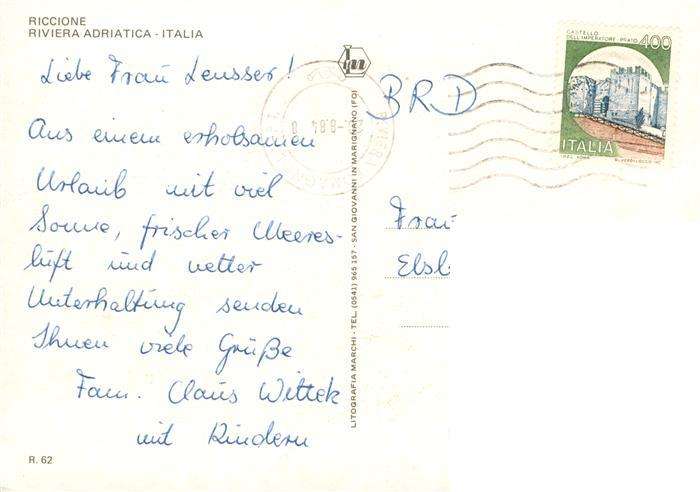 RICCIONE
RIVIERA ADRIATICA - ITALIA
Liebe Frau Leusser!
Aus einem erholsamen
Urlaub mit viel
Sonne, frischer Meeres-
luft und netter
Unterhaltung senden
Ihnen viele Grüße
Fam. Claus Wittek
mit Kindern
R. 62
LITOGRAFIA MARCHI - TEL. (0541) 965 157 - SAN GIOVANNI IN MARIGNANO (FO)
BRD
Frau
Elsb
CASTELLO
DELL'IMPERATORE PRATO
400
ITALIA